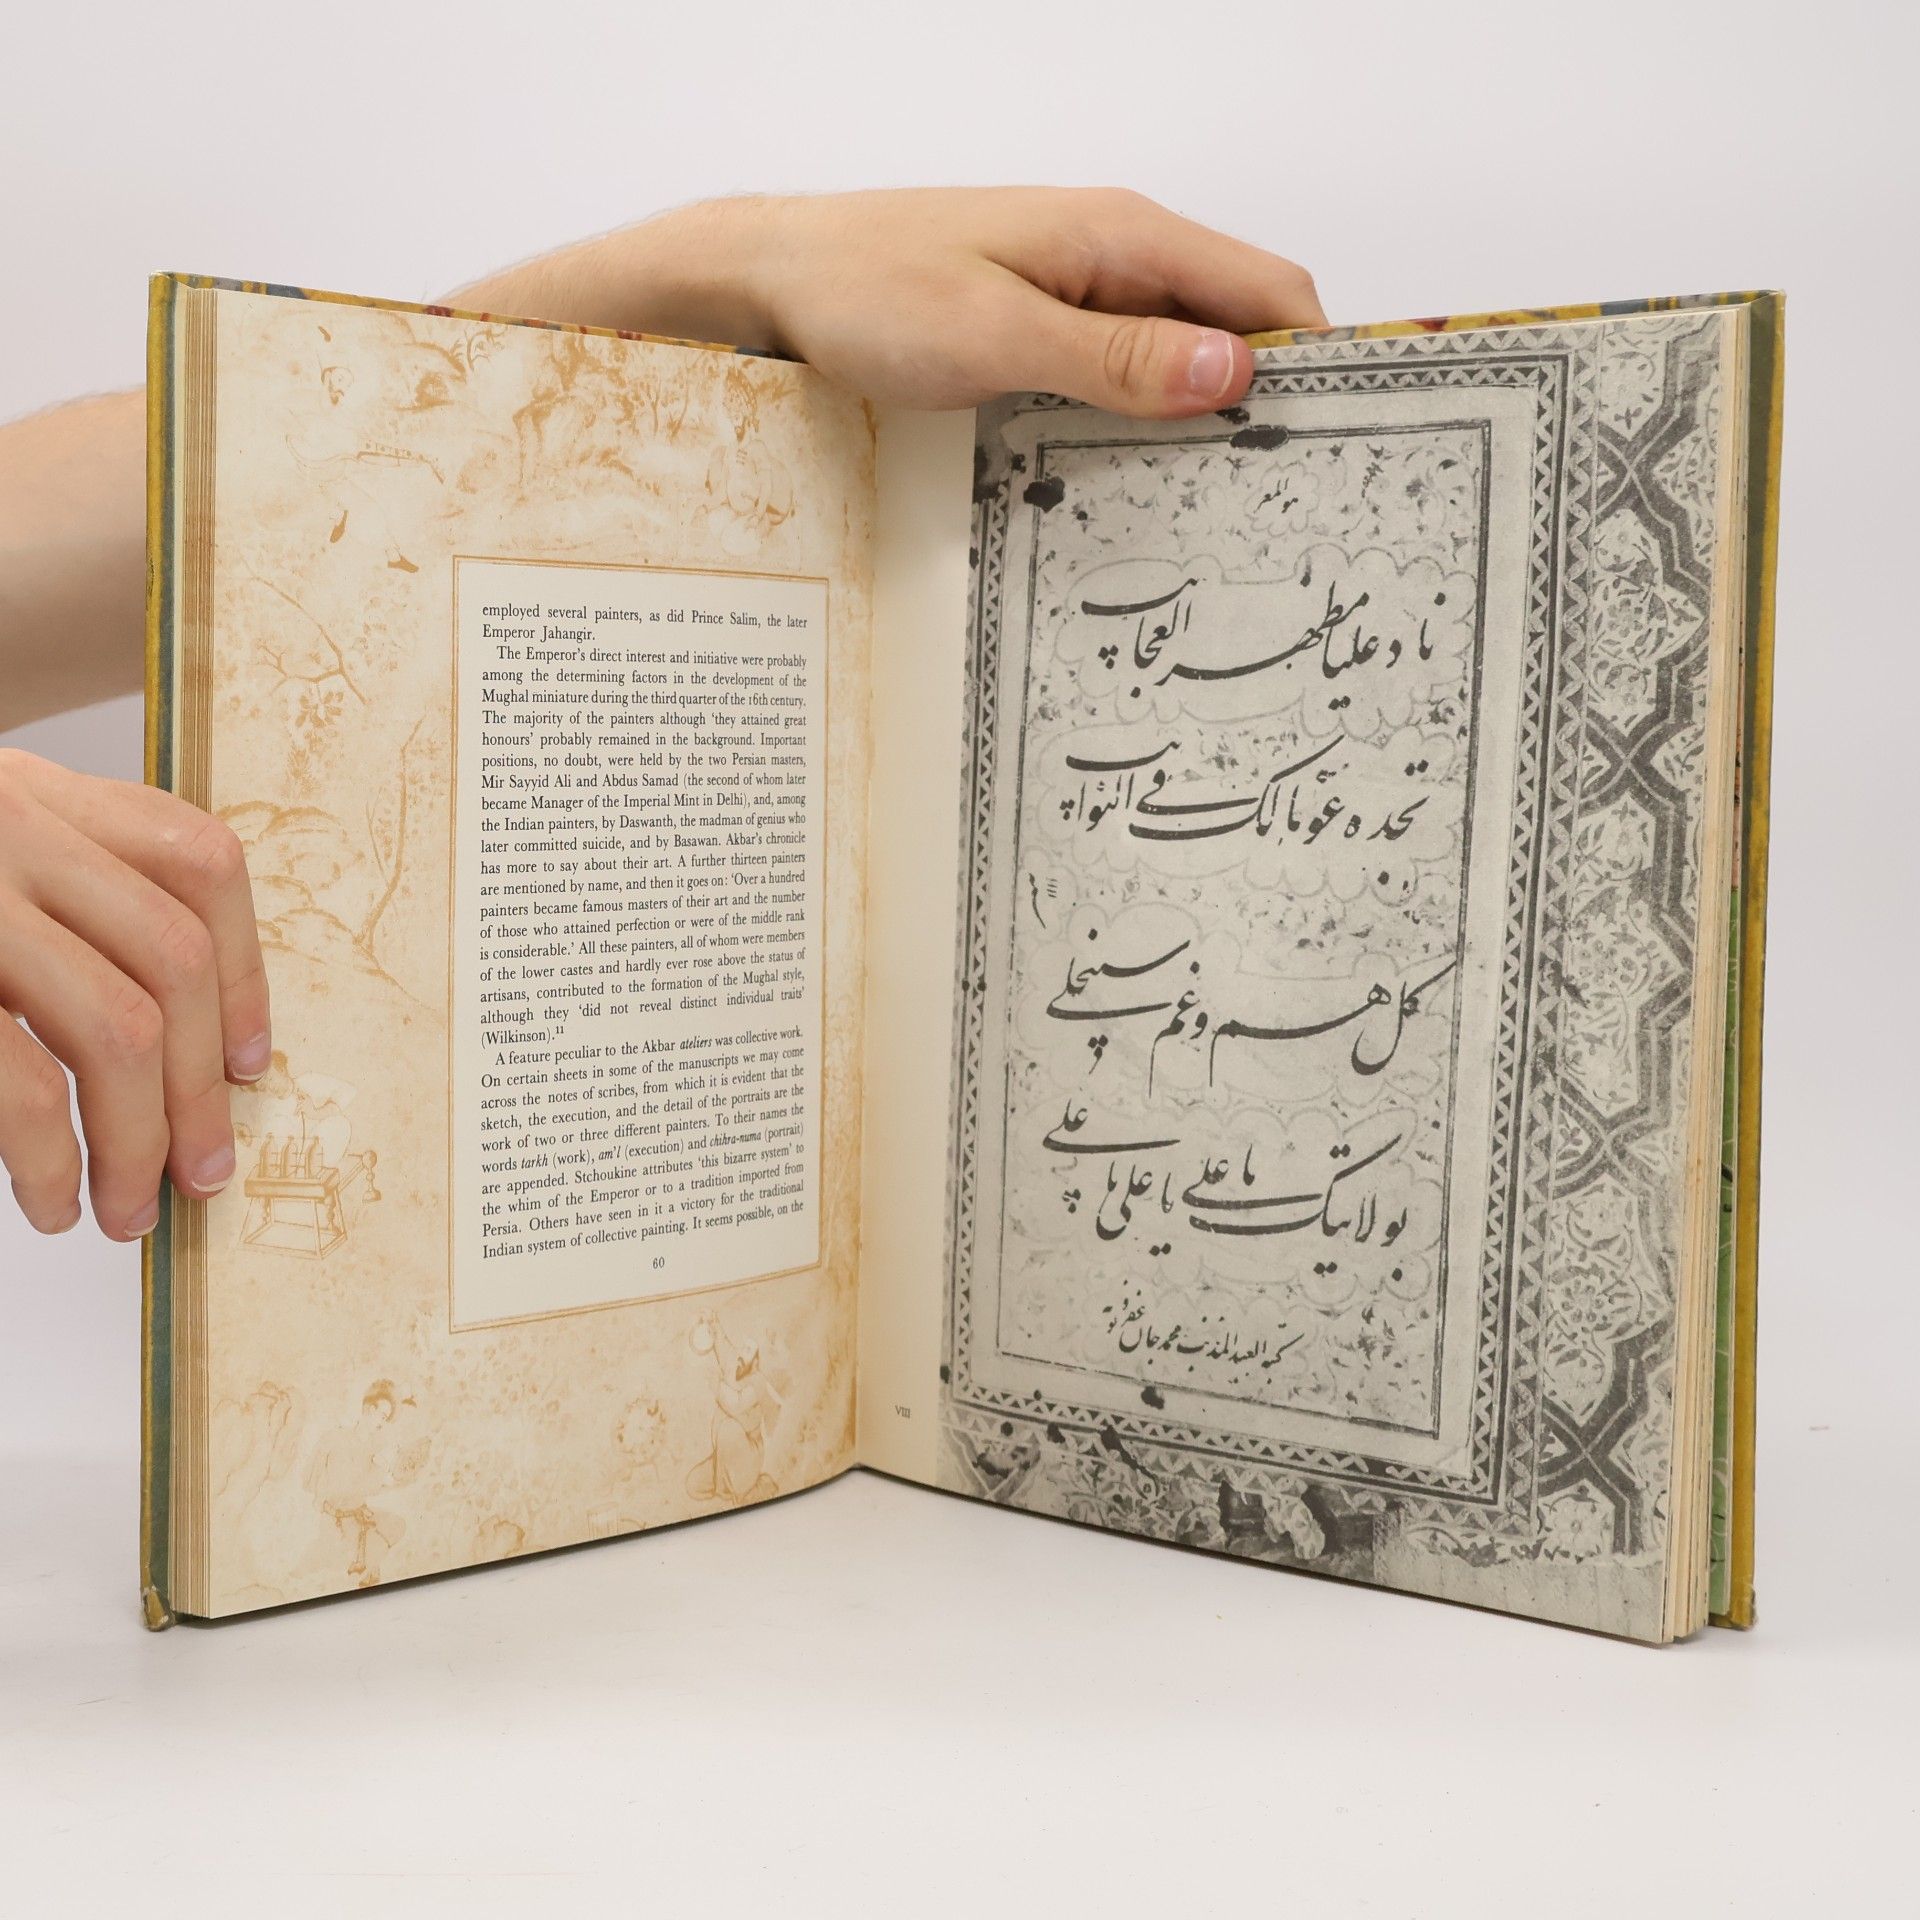 employed several painters, as did Prince Salim, the later
Emperor Jahangir.
The Emperor's direct interest and initiative were probably
among the determining factors in the development of the
Mughal miniature during the third quarter of the 16th century.
The majority of the painters although 'they attained great
honours' probably remained in the background. Important
positions, no doubt, were held by the two Persian masters,
Mir Sayyid Ali and Abdus Samad (the second of whom later
became Manager of the Imperial Mint in Delhi), and, among
the Indian painters, by Daswanth, the madman of genius who
later committed suicide, and by Basawan. Akbar's chronicle
has more to say about their art. A further thirteen painters
are mentioned by name, and then it goes on: 'Over a hundred
painters became famous masters of their art and the number
of those who attained perfection or were of the middle rank
is considerable.' All these painters, all of whom were members
of the lower castes and hardly ever rose above the status of
artisans, contributed to the formation of the Mughal style,
although they 'did not reveal distinct individual traits'
(Wilkinson).¹¹
A feature peculiar to the Akbar ateliers was collective work.
On certain sheets in some of the manuscripts we may come
across the notes of scribes, from which it is evident that the
sketch, the execution, and the detail of the portraits are the
work of two or three different painters. To their names the
words tarkh (work), am'l (execution) and chihra-numa (portrait)
are appended. Stchoukine attributes 'this bizarre system' to
the whim of the Emperor or to a tradition imported from
Persia. Others have seen in it a victory for the traditional
Indian system of collective painting. It seems possible, on the
60
VIII
هو المعز
ناد علیا مظهر العجایب
تجده عونا لک فی النوایب
کل هم و غم سینجلی
بولایتک یا علی یا علی یا علی
کتبه العبد المذنب محمد جان